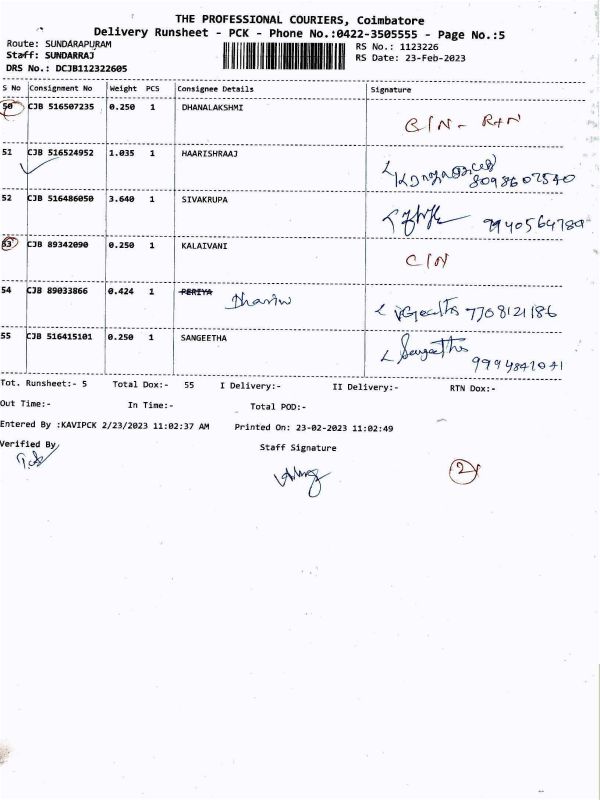 THE PROFESSIONAL COURIERS, Coimbatore
Delivery Runsheet - PCK - Phone No.:0422-3505555 - Page No.:5
Route: SUNDARAPURAM RS No.: 1123226
Staff: SUNDARRAJ RS Date: 23-Feb-2023
DRS No.: DCJB112322605
S No Consignment No Weight PCS Consignee Details Signature
50 CJB 516507235 0.250 1 DHANALAKSHMI
C/N - RTN
51 CJB 516524952 1.035 1 HAARISHRAAJ
8098607540
52 CJB 516486050 3.640 1 SIVAKRUPA
9940564789
53 CJB 89342090 0.250 1 KALAIVANI
C/N
54 CJB 89033866 0.424 1 PERIYA
7708121186
55 CJB 516415101 0.250 1 SANGEETHA
Sangeetha
Tot. Runsheet:- 5 Total Dox:- 55 I Delivery:- II Delivery:- RTN Dox:-
Out Time:- In Time:- Total POD:-
Entered By :KAVIPCK 2/23/2023 11:02:37 AM Printed On: 23-02-2023 11:02:49
Verified By Staff Signature
2